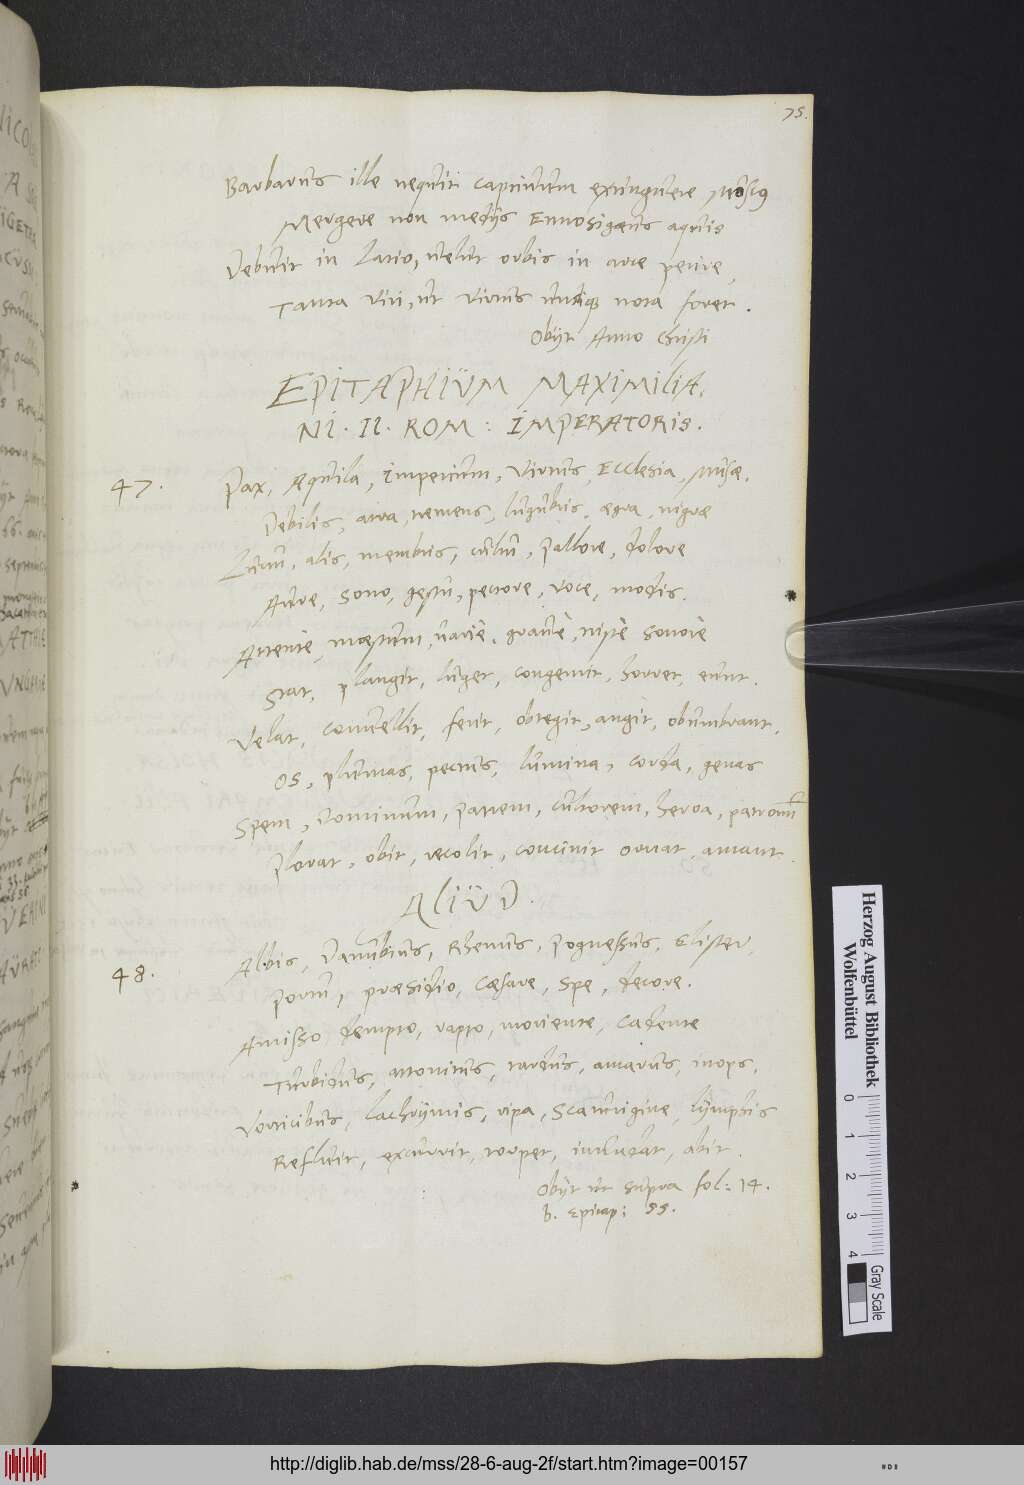 75.
Barbarus ille nequit captiuum extinguere Moscus
Mergere non medijs Ennosigæus aquis
Debuit in Latio, uelut orbis in arce perire,
Tanta viri, ut virtus undique nota foret.
Obijt Anno Christi
EPITAPHIUM MAXIMILIA.
NI. II. ROM: IMPERATORIS.
47. Pax, Aquila, Imperium, Virtus, Ecclesia, Musæ.
Debilis, atra, uemens, lugubris, ægra, nigræ
Luctu, alis, membris, cultu, pallore, dolore
Aure, sono, gestu, pectore, voce, modis.
Attente, mæstum, uarie, graue, triste sonore
Stat, plangit, luget, congemit, horret, eunt.
Velat, conuellit, ferit, obtegit, angit, obumbrant,
Os, plumas, pectus, lumina, corda, genas
Spem, Dominum, Patrem, Cultorem, heroa, patronum
Plorat, obit, recolit, concinit ornat, amant.
ALIUD.
48. Albis, Danubius, Rhenus, Pognessus, Elister,
Portu, præsidio, Cæsare, spe, decore.
Amisso dempto, rapto, moriente, cadente
Turbidus, attonitus, tardus, amarus, inops,
Vorticibus, lachrymis, ripa, scaturigine, lymphis
Refluit, excurrit, torpet, inundat, abit.
Obijt ut supra fol: 14.
b. Epitap: 55.
Herzog August Bibliothek
Wolfenbüttel
0 1 2 3 4
Gray Scale
http://diglib.hab.de/mss/28-6-aug-2f/start.htm?image=00157